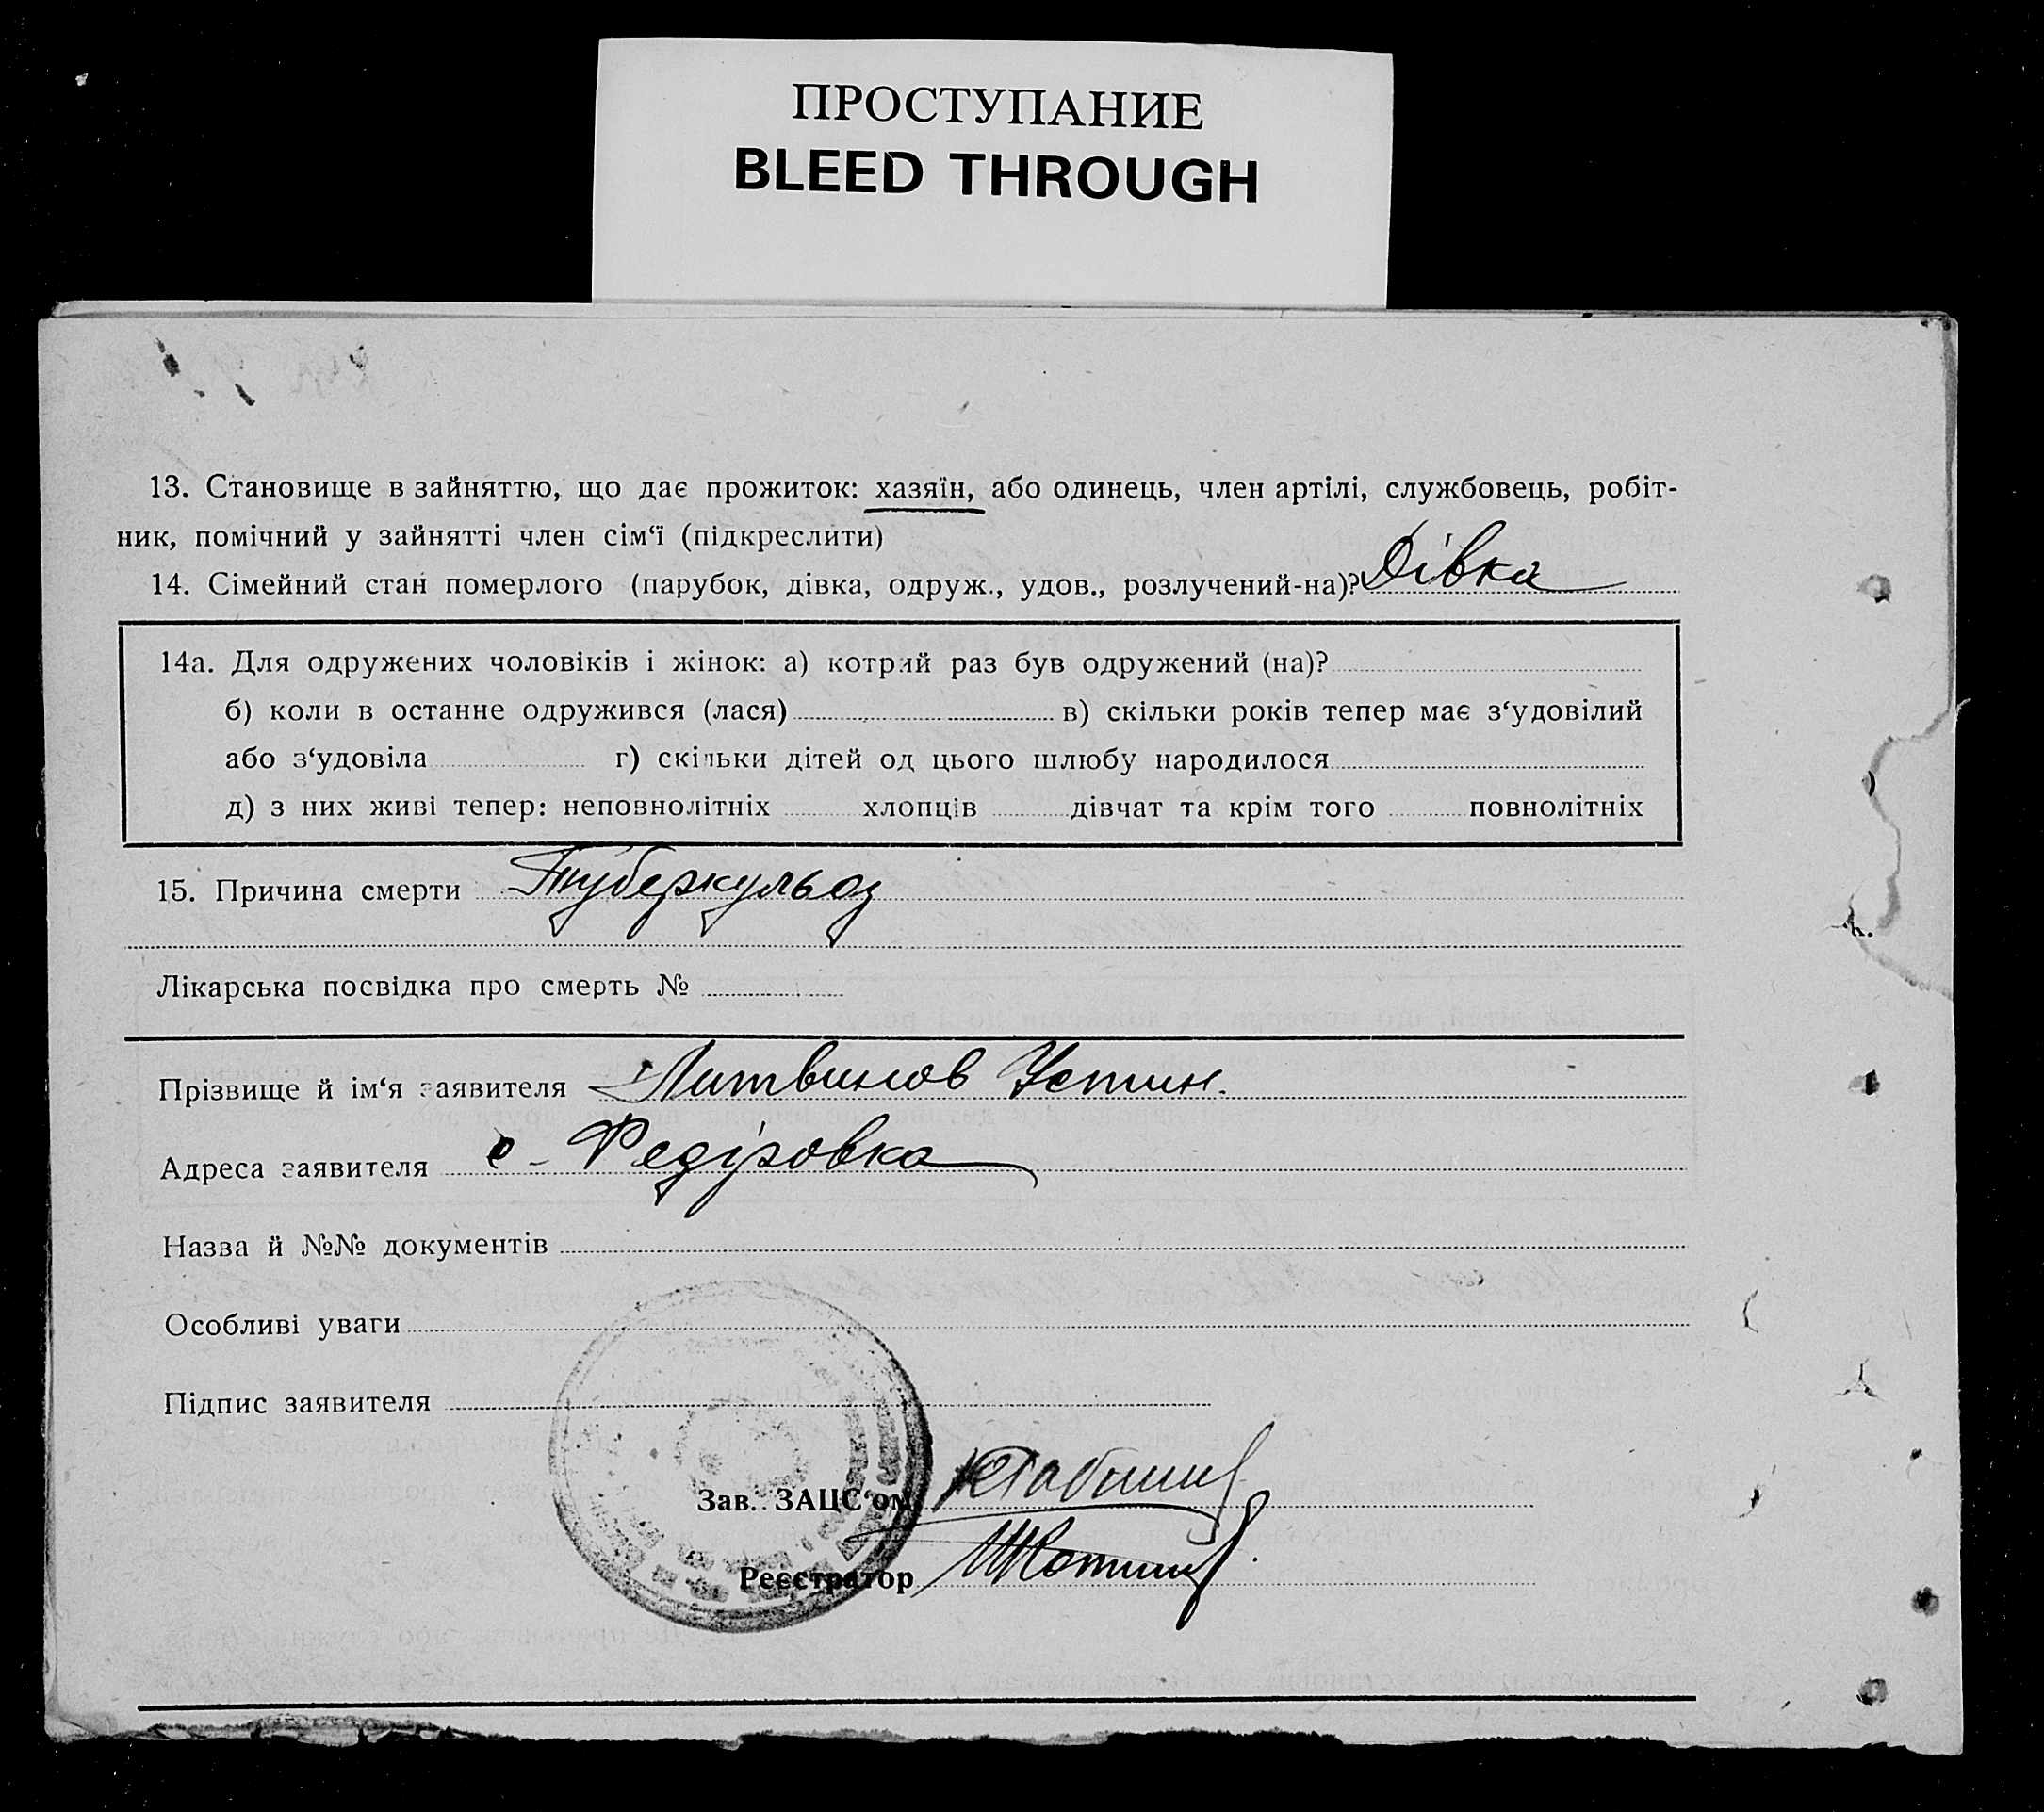 ПРОСТУПАНИЕ
BLEED THROUGH
13. Становище в зайняттю, що дає прожиток: хазяїн, або одинець, член артілі, службовець, робіт-
ник, помічний у зайнятті член сім‘ї (підкреслити)
14. Сімейний стан померлого (парубок, дівка, одруж., удов., розлучений-на)? Дівка
14а. Для одружених чоловіків і жінок: а) котрий раз був одружений (на)?
б) коли в останне одружився (лася) в) скільки років тепер має з‘удовілий
або з‘удовіла г) скільки дітей од цього шлюбу народилося
д) з них живі тепер: неповнолітніх хлопців дівчат та крім того повнолітніх
15. Причина смерти Туберкульоз
Лікарська посвідка про смерть №
Прізвище й ім‘я заявителя Литвинов Устин.
Адреса заявителя с - Федіровка
Назва й №№ документів
Особливі уваги
Підпис заявителя
Зав. ЗАЦС‘ом
Реєстратор